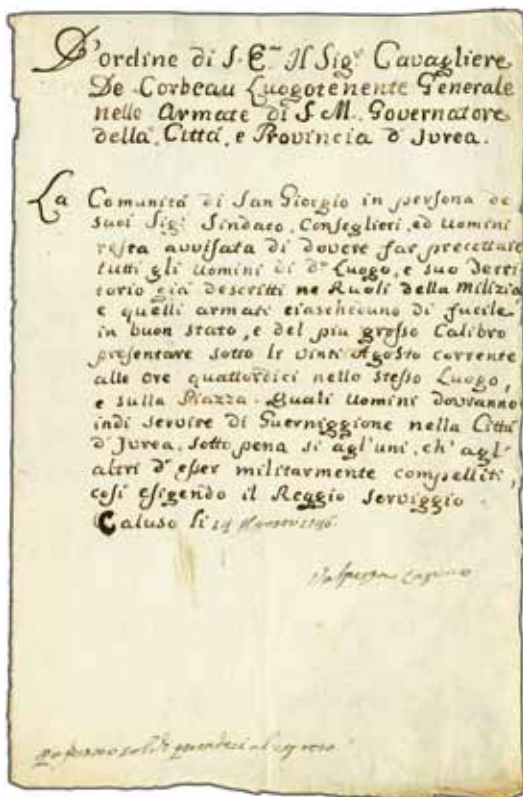 D'ordine di S. E.ᵐ Il Sig.ʳ Cavagliere
De Corbeau Luogotenente Generale
nelle Armate di S. M. Governatore
della Città, e Provincia d'Jvrea.
La Comunità di San Giorgio in persona de
suoi Sig.ⁱ Sindaco, Conseglieri, ed Uomini
resta avvisata di dovere far precettare
tutti gli Uomini di d.º Luogo, e suo Territ
torio già descritti ne Ruoli della Milizia
e quelli armati ciascheduno di fucile
in buon stato, e del più grosso Calibro
presentare sotto li vinti Agosto corrente
alle ore quattordici nello stesso Luogo,
e sulla Piazza. Quali Uomini dovranno
indi servire di Guerniggione nella Città
d'Jvrea, sotto pena si agl'uni, ch'agl'
altri d'esser militarmente compelliti,
così esigendo il Reggio serviggio
Caluso li
soldi quindeci al